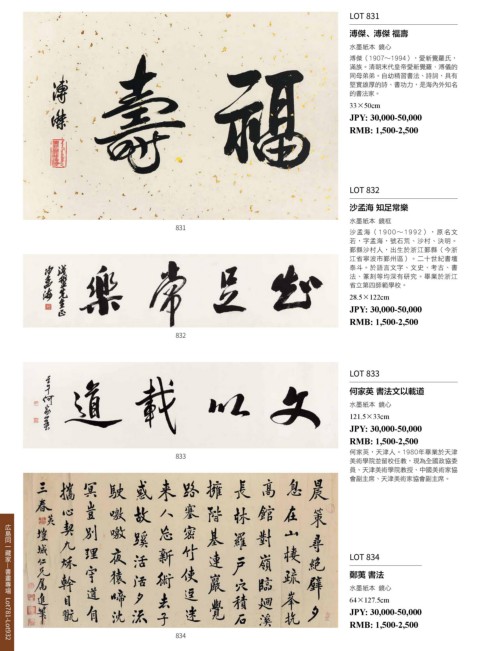 LOT 831
溥傑、溥傑 福壽
水墨紙本 鏡心
溥傑（1907～1994），愛新覺羅氏，
滿族。清朝末代皇帝愛新覺羅．溥儀的
同母弟弟。自幼精習書法，詩詞，具有
堅實雄厚的詩、書功力，是海內外知名
的書法家。
33×50cm
JPY: 30,000-50,000
RMB: 1,500-2,500
福壽
溥傑
831
LOT 832
沙孟海 知足常樂
水墨紙本 鏡框
沙孟海（1900～1992），原名文
若，字孟海，號石荒、沙村、決明，
鄞縣沙村人，出生於浙江鄞縣（今浙
江省寧波市鄞州區）。二十世紀書壇
泰斗。於語言文字、文史、考古、書
法、篆刻等均深有研究。畢業於浙江
省立第四師範學校。
28.5×122cm
JPY: 30,000-50,000
RMB: 1,500-2,500
知足常樂
先生正
沙孟海
832
LOT 833
何家英 書法文以載道
水墨紙本 鏡心
121.5×33cm
JPY: 30,000-50,000
RMB: 1,500-2,500
何家英，天津人，1980年畢業於天津
美術學院並留校任教，現為全國政協委
員、天津美術學院教授、中國美術家協
會副主席，天津美術家協會副主席。
文以載道
壬午何家英
833
LOT 834
鄭蕅 書法
水墨紙本 鏡心
64×127.5cm
JPY: 30,000-50,000
RMB: 1,500-2,500
晨策尋絕壁夕
息在山棲疏峯抗
高館對嶺臨迴溪
長林羅戶穴積石
擁階基連巖覺
路塞密竹使逕迷
來人忘新術去子
惑故蹊活活夕流
駛噭噭夜猿啼沈
冥豈別理守道自
攜心契九秋幹目翫
三春荑
834
広島同一藏家－書畫專場 Lot781-Lot932